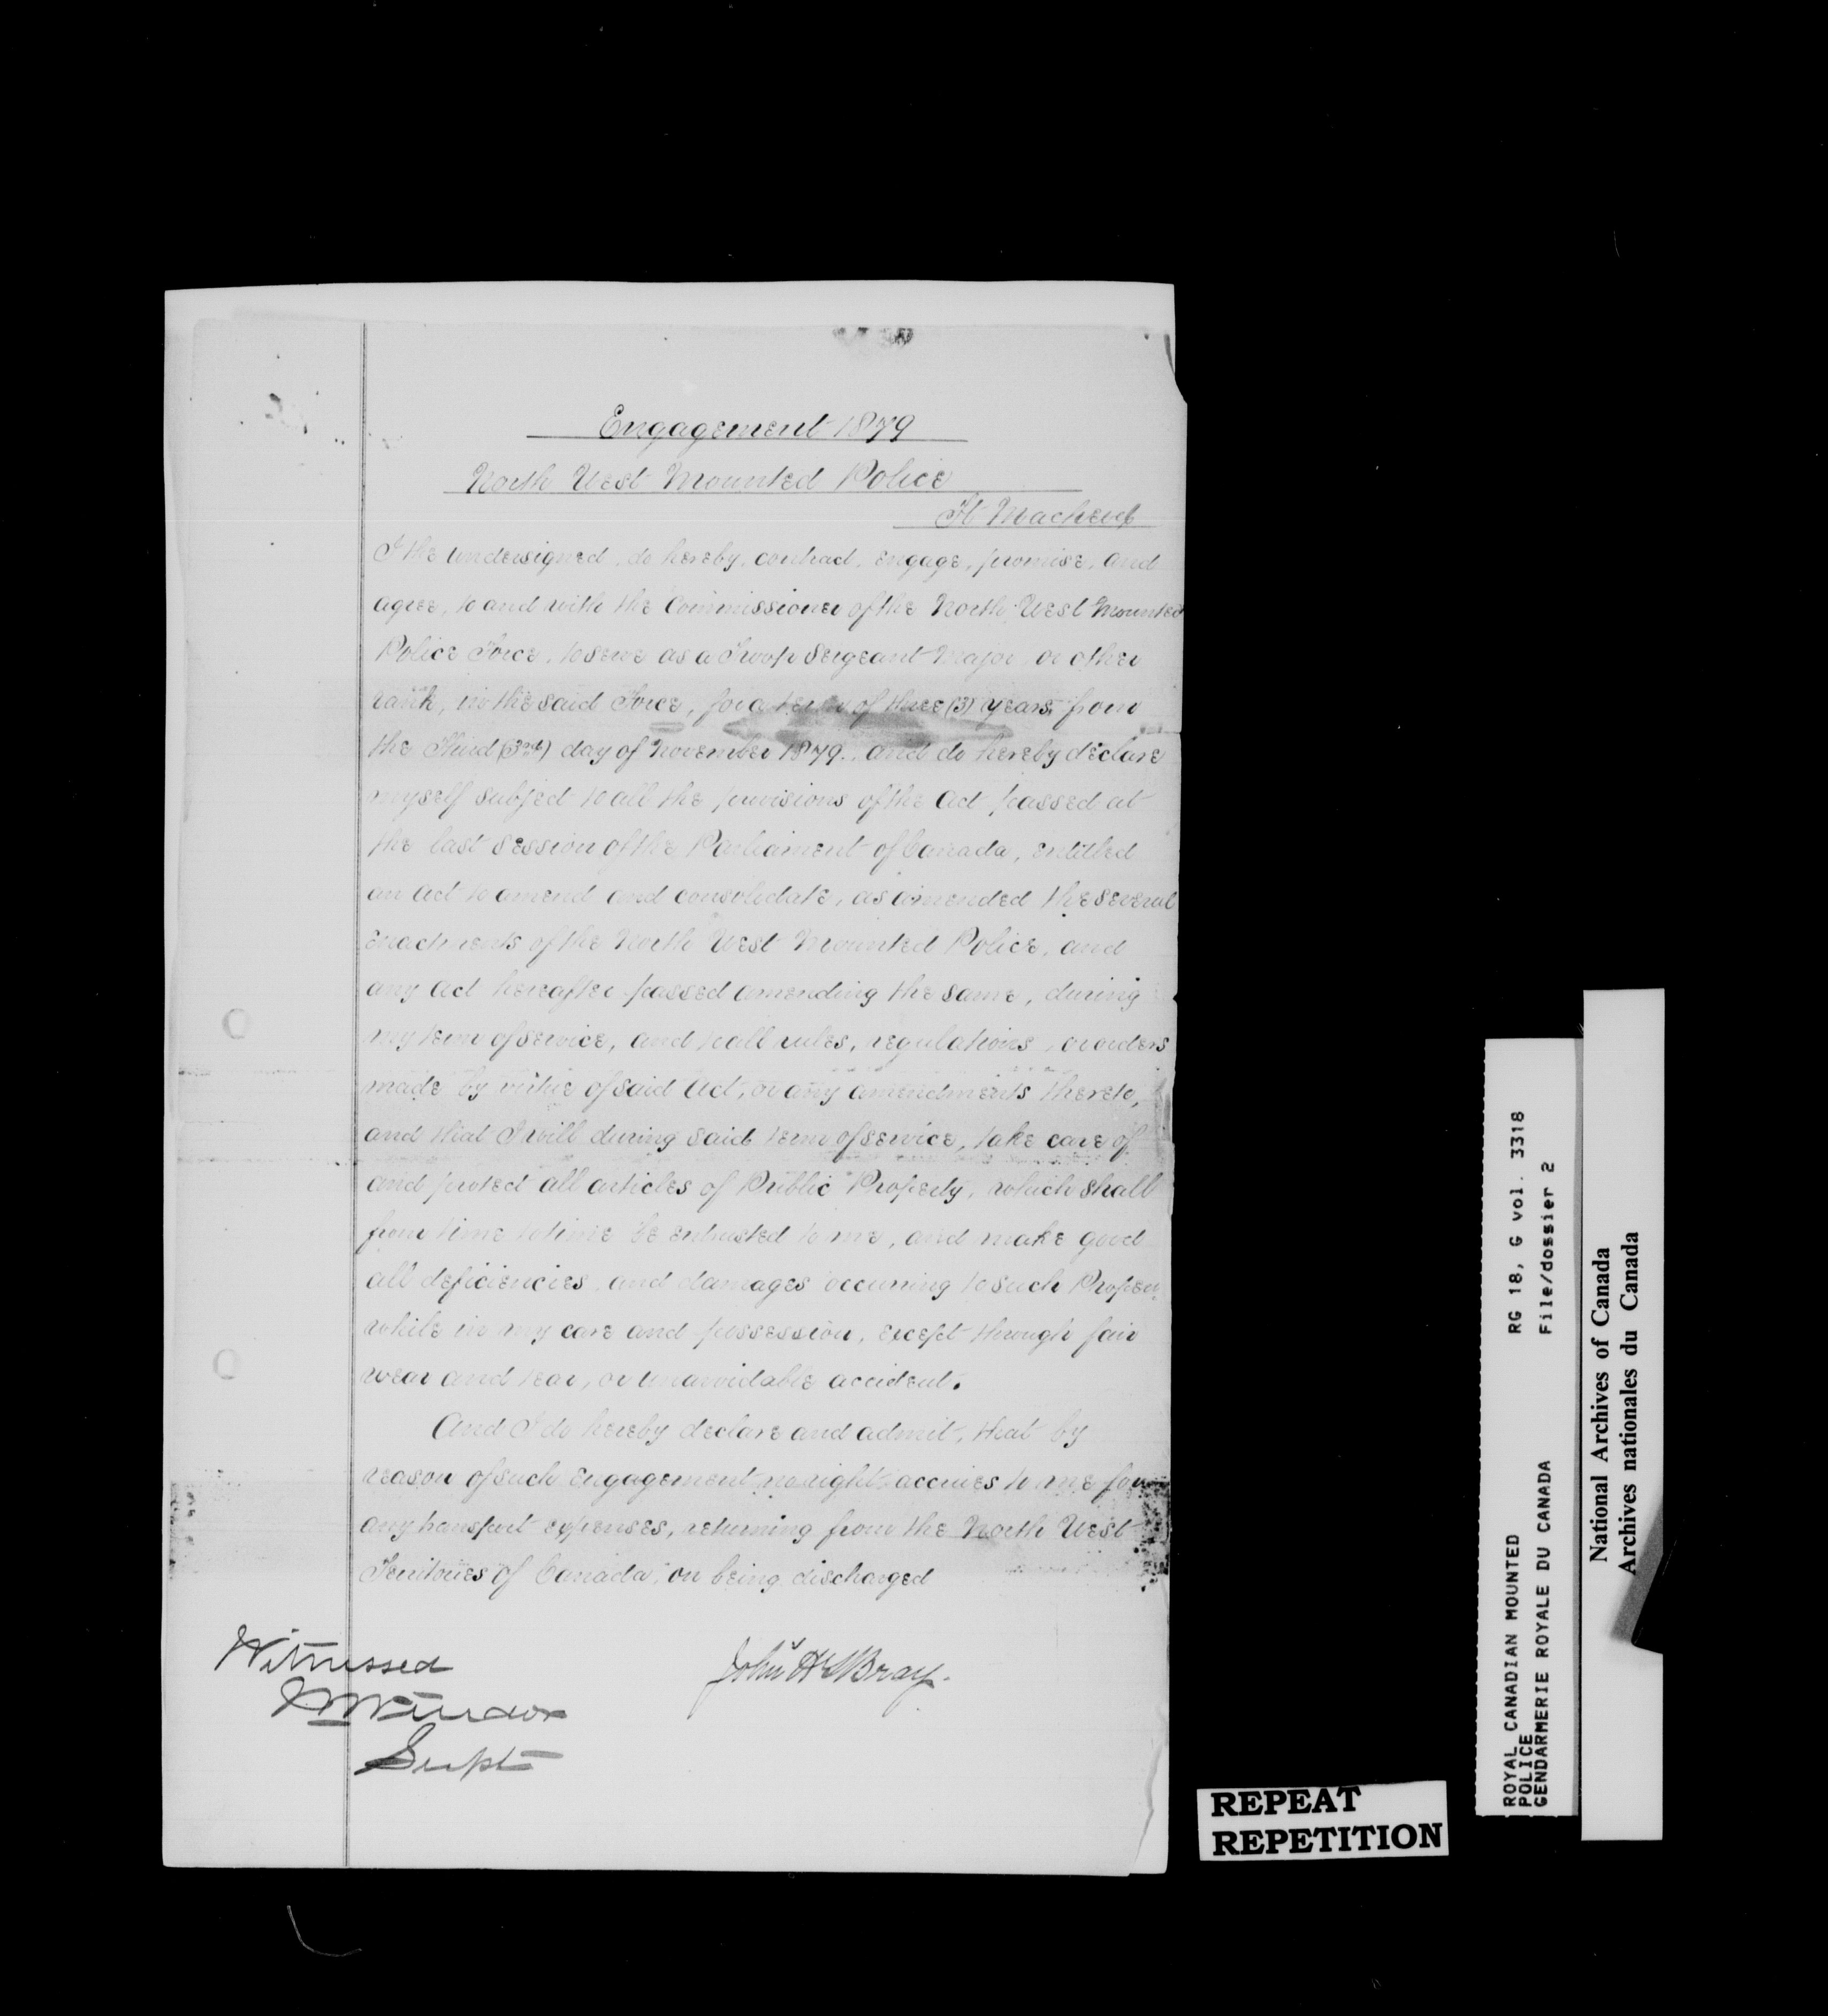 Engagement 1879
North West Mounted Police
Ft Macleod
I the undersigned, do hereby, contract, engage, promise, and
agree, to and with the Commissioner of the North West Mounted
Police Force, to serve as a Troop Sergeant Major, or other
rank, in the said Force, for a term of three (3) years from
the Third (3rd) day of November 1879. and do hereby declare
myself subject to all the provisions of the Act passed at
the last session of the Parliament of Canada, entitled
an Act to amend and consolidate, as amended the several
enactments of the North West Mounted Police, and
any Act hereafter passed amending the same, during
my term of service, and to all rules, regulations, or orders
made by virtue of said Act, or any amendments thereto,
and that I will during said term of service, take care of
and protect all articles of Public Property, which shall
from time to time be entrusted to me, and make good
all deficiencies, and damages occurring to such
while in my care and possession, except through fair
wear and tear, or unavoidable accident.
And I do hereby declare and admit, that by
reason of such Engagement no right accrues to me for
any transport expenses, returning from the North West
Territories of Canada, on being discharged
Witnessed
John H Bray.
Supt
REPEAT
REPETITION
ROYAL CANADIAN MOUNTED
POLICE
GENDARMERIE ROYALE DU CANADA
RG 18, G vol. 3318
File/dossier 2
National Archives of Canada
Archives nationales du Canada